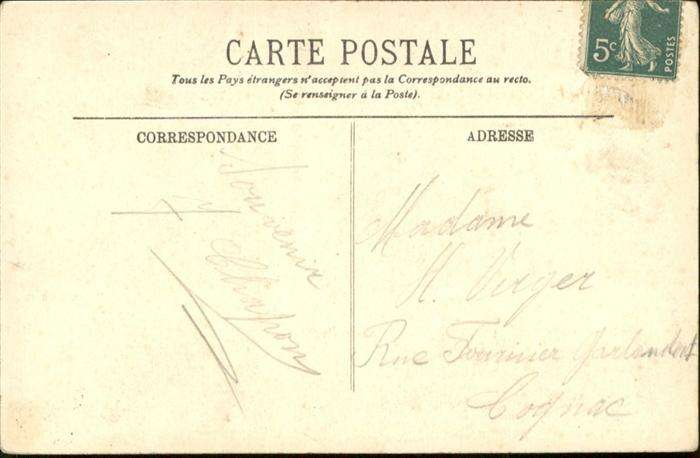 5c
POSTES
CARTE POSTALE
Tous les Pays étrangers n'acceptent pas la Correspondance au recto.
(Se renseigner à la Poste).
CORRESPONDANCE
ADRESSE
Souvenir
Chapon
Madame
H. Verger
Rue Fournier
Cognac